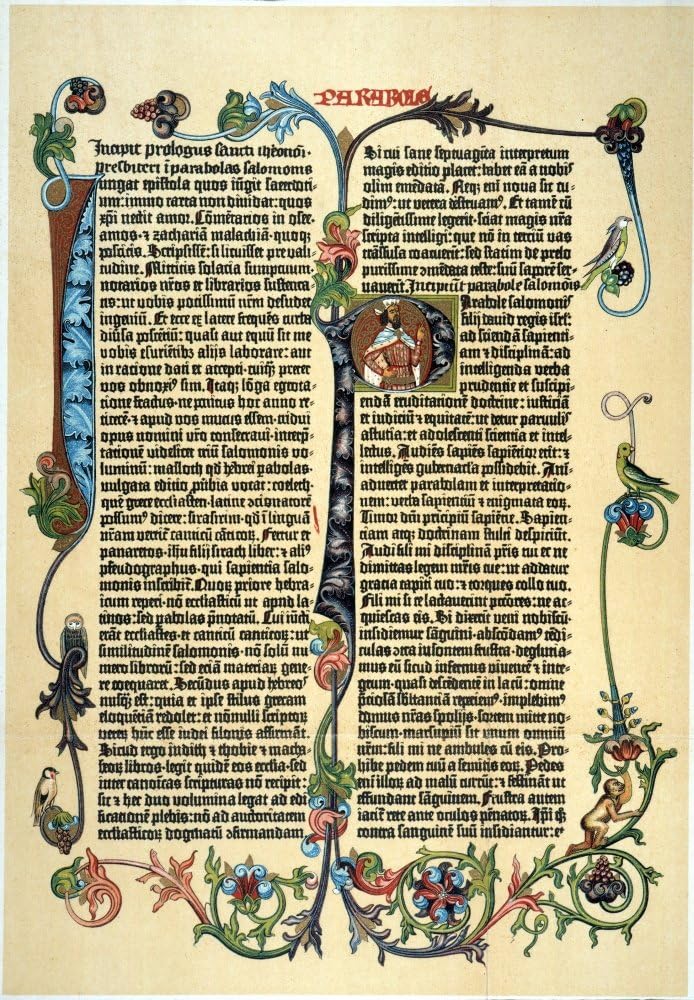 PARABOLE
Incipit prologus sancti iheronimi
presbiteri i parabolas salomonis
iungat epistola quos iugit sacerdoti-
um: immo carta non dividat: quos
xpi nectit amor. Cometarios in osee.
amos. & zachariā malachiā. quoq;
poscitis. Scripsissē: si licuisset pre vali-
tudine. Mittitis solacia sumptuum.
notarios nr̄os et librarios sustenta-
tis: ut vobis potissimū nr̄m desudet
ingeniū. Et ecce ex latere frequēs turba
diversa poscētiū: quasi aut equū sit me
vobis esurientibz aliis laborare: aut
in ratione dati et accepti. cuiq; preter
vos obnoxi⁹ sim. Itaq; lōga egrota-
tione fractus. ne penitus hoc anno re-
ticerē. & apud vos mutus essem. tridui
opus nomini vr̄o consecravi. interp̄-
tationē videlicet triū salomonis vo-
luminū: masloth qd̄ hebrei pabolas.
vulgata editio p̄ubia vocat: coeleth.
quē grece ecclesiasten. latine ↄcionatorē
possum⁹ dicere: sirasirim. qd̄ i linguā
nr̄am vertit̄ canticū cātico℞. Fertur et
panaretos. ihu filii sirach liber: & ali⁹
pseudographus. qui sapientia salo-
monis inscribit̄. Quo℞ priore hebra-
icum reperi. nō ecclesiasticū ut apud la-
tinos: sed pabolas p̄notatū. Cui iūcti
erāt ecclesiastes. et canticū cantico℞: ut
similitudinē salomonis. nō solū nu-
mero libro℞: sed eciā materia℞ gene-
re coequaret. Secūdus apud hebreos
nusq̄ est: quia et ipse stilus grecam
eloquētiā redolet: et nōnulli scripto℞
vete℞ hūc esse iudei filonis affirmāt.
Sicud ergo iudith & thobie & macha-
beo℞ libros. legit quidē eos ecclesia. sed
inter canoicas scripturas nō recipit:
sic & hec duo volumina legat ad edi-
ficationē plebis: nō ad auctoritatem
ecclesiastico℞ dogmatū ↄfirmandam.
Si cui sane septuagīta interpretum
magis editio placet: habet eā a nobis
olim emēdatā. Neq; enī nova sic cu-
dim⁹: ut vetera destruam⁹. Et tamē cū
diligētissime legerit. sciat magis nr̄a
scripta intelligi: que nō in terciū vas
trāsfusa coacuerit: sed statim de prelo
purissime ↄmēdata teste: suū saporē ser-
vaverit. Incipiūt parabole salomonis
Parabole salomonis
filii david regis isrl̄:
ad sciendā sapienti-
am & disciplinā: ad
intelligenda verba
prudentie et suscipi-
endā eruditationē doctrine: iusticiā
et iudiciū & equitatē: ut detur parvulis
astutia: et adolescenti scientia et intel-
lectus. Audiēs sapiēs sapiētior erit: &
intelligēs gubernacla possidebit. Ani-
advertet parabolam et interpretatio-
nem: verba sapientiū & enigmata eo℞.
Timor dn̄i principiū sapiētie. Sapien-
ciam atq; doctrinam stulti despiciūt.
Audi fili mi disciplinā pr̄is tui et ne
dimittas legem mr̄is tue: ut addatur
gracia capiti tuo: & torques collo tuo.
Fili mi si te lactaverint peccatores: ne ac-
quiescas eis. Si dixerit veni nobiscū.
insidiemur sāguini. abscōdam⁹ tēdi-
culas ↄtra insontem frustra. deglutia-
mus eū sicud infernus viventē & inte-
grum. quasi descēdentē in lacū: omnē
p̄ciosā sbstantiā reperiem⁹. implebim⁹
domus nr̄as spoliis. sortem mitte no-
biscum. marsupiū sit unum omniū
nr̄m: fili mi ne ambules cū eis. Pro-
hibe pedem tuū a semitis eo℞. Pedes
enī illo℞ ad malū currūt: & festināt ut
effundant sāguinem. Frustra autem
iacit̄ rete ante oculos pēnato℞. Ip̄i q;
contra sanguinē suū insidiantur: et